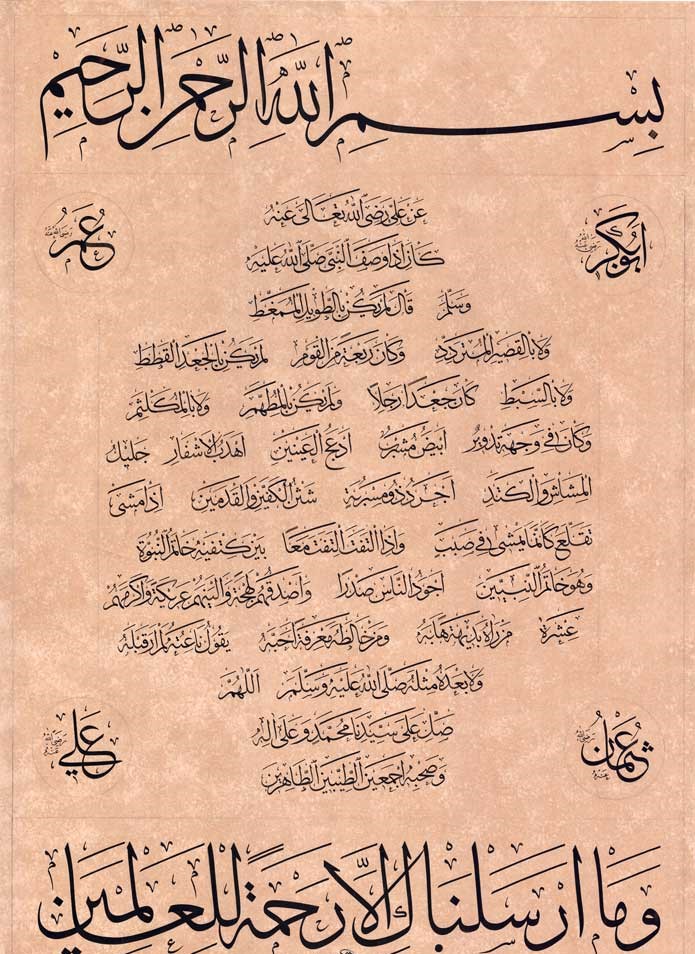 بسم الله الرحمن الرحيم
ابوبكر رضي الله عنه
عمر رضي الله عنه
عن علي رضي الله تعالى عنه
كان اذا وصف النبي صلى الله عليه
وسلم قال لم يكن بالطويل الممغط
ولا بالقصير المتردد وكان ربعة من القوم لم يكن بالجعد القطط
ولا بالسبط كان جعدا رجلا ولم يكن بالمطهم ولا بالمكلثم
وكان في وجهه تدوير ابيض مشرب ادعج العينين اهدب الاشفار جليل
المشاش والكتد اجرد ذو مسربة شثن الكفين والقدمين اذا مشى
تقلع كانما يمشي في صبب واذا التفت التفت معا بين كتفيه خاتم النبوة
وهو خاتم النبيين اجود الناس صدرا واصدقهم لهجة والينهم عريكة واكرمهم
عشرة من راه بديهة هابه ومن خالطه معرفة احبه يقول ناعته لم ار قبله
ولا بعده مثله صلى الله عليه وسلم اللهم
صل على سيدنا محمد وعلى اله
وصحبه اجمعين الطيبين الطاهرين
عثمان رضي الله عنه
علي رضي الله عنه
وما ارسلناك الا رحمة للعالمين